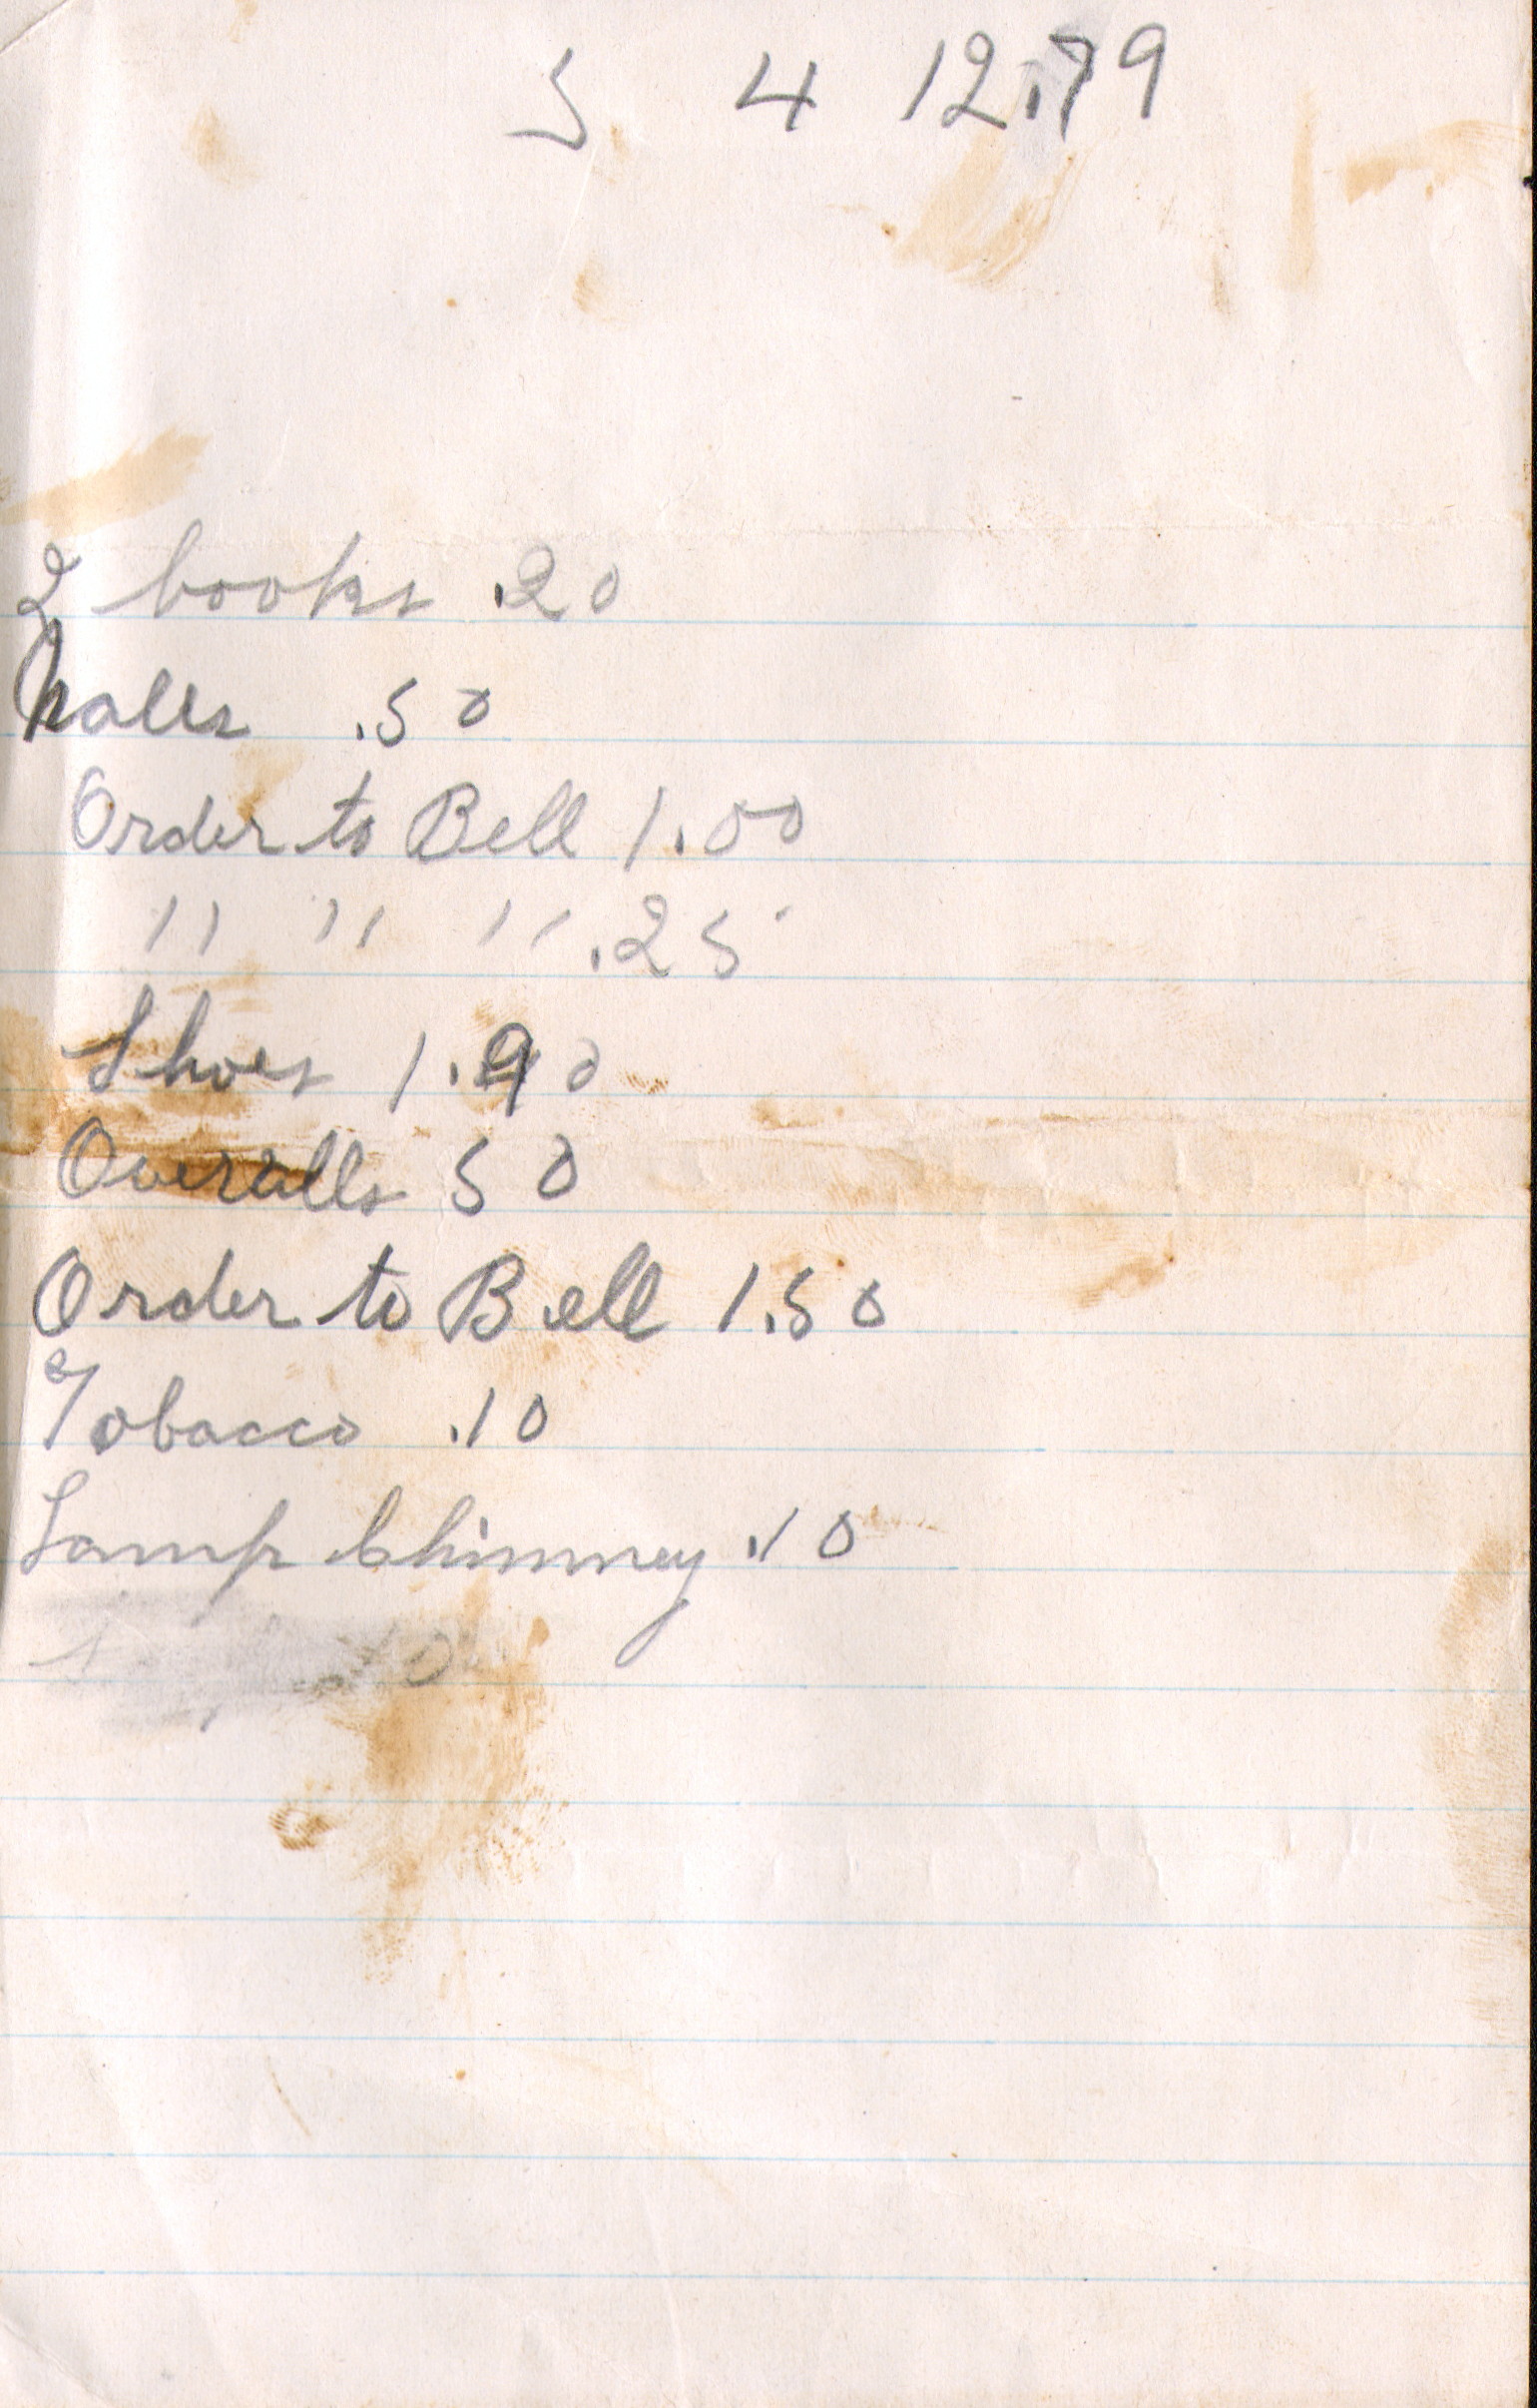 5 4 12.79
2 books .20
.50
Order to Bell 1.00
" " " .25
Shoes 1.90
Overalls 50
Order to Bell 1.50
Tobacco .10
Lamp Chimney .10